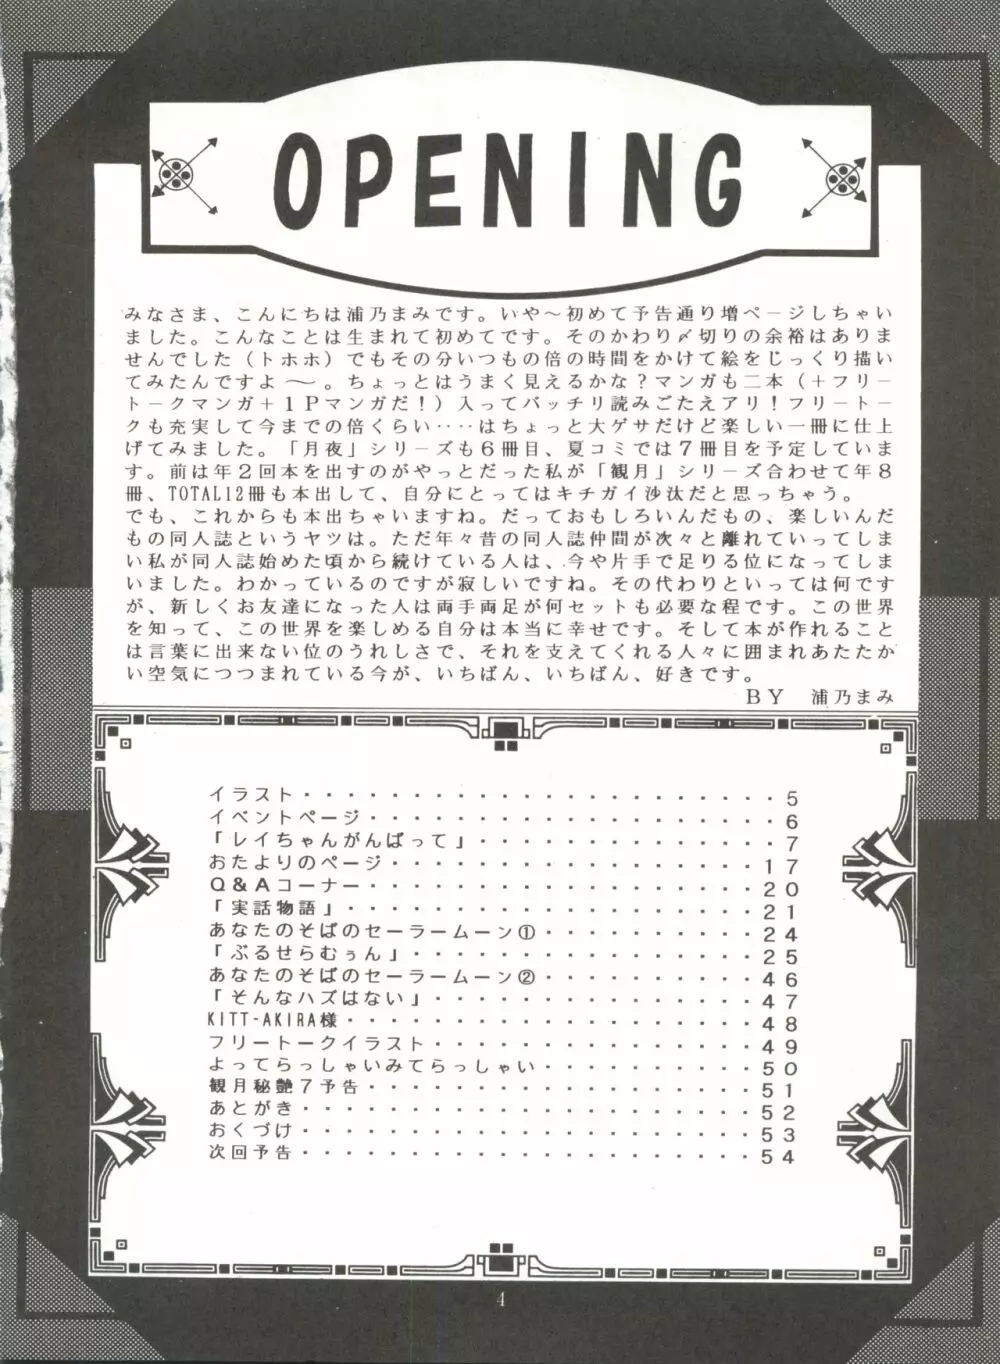 OPENING
みなさま、こんにちは浦乃まみです。いや〜初めて予告通り増ページしちゃい
ました。こんなことは生まれて初めてです。そのかわり〆切りの余裕はありま
せんでした（トホホ）でもその分いつもの倍の時間をかけて絵をじっくり描い
てみたんですよ〜。ちょっとはうまく見えるかな？マンガも二本（＋フリー
トークマンガ＋１Ｐマンガだ！）入ってバッチリ読みごたえアリ！フリートー
クも充実して今までの倍くらい‥‥はちょっと大ゲサだけど楽しい一冊に仕上
げてみました。「月夜」シリーズも６冊目、夏コミでは７冊目を予定していま
す。前は年２回本を出すのがやっとだった私が「観月」シリーズ合わせて年８
冊、TOTAL12冊も本出して、自分にとってはキチガイ沙汰だと思っちゃう。
でも、これからも本出ちゃいますね。だっておもしろいんだもの、楽しいんだ
もの同人誌というヤツは。ただ年々昔の同人誌仲間が次々と離れていってしま
い私が同人誌始めた頃から続けている人は、今や片手で足りる位になってしま
いました。わかっているのですが寂しいですね。その代わりといっては何です
が、新しくお友達になった人は両手両足が何セットも必要な程です。この世界
を知って、この世界を楽しめる自分は本当に幸せです。そして本が作れること
は言葉に出来ない位のうれしさで、それを支えてくれる人々に囲まれあたたか
い空気につつまれている今が、いちばん、いちばん、好きです。
ＢＹ　浦乃まみ
イラスト・・・・・・・・・・・・・・・・・・・・・・５
イベントページ・・・・・・・・・・・・・・・・・・・６
「レイちゃんがんばって」・・・・・・・・・・・・・・７
おたよりのページ・・・・・・・・・・・・・・・・・１７
Ｑ＆Ａコーナー・・・・・・・・・・・・・・・・・・２０
「実話物語」・・・・・・・・・・・・・・・・・・・２１
あなたのそばのセーラームーン①・・・・・・・・・・２４
「ぶるせらむぅん」・・・・・・・・・・・・・・・・２５
あなたのそばのセーラームーン②・・・・・・・・・・４６
「そんなハズはない」・・・・・・・・・・・・・・・４７
KITT-AKIRA様・・・・・・・・・・・・・・・・・・・４８
フリートークイラスト・・・・・・・・・・・・・・・４９
よってらっしゃいみてらっしゃい・・・・・・・・・・５０
観月秘艶７予告・・・・・・・・・・・・・・・・・・５１
あとがき・・・・・・・・・・・・・・・・・・・・・５２
おくづけ・・・・・・・・・・・・・・・・・・・・・５３
次回予告・・・・・・・・・・・・・・・・・・・・・５４
4